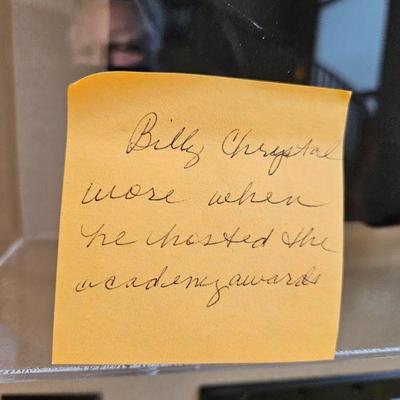 Billy Chrystal
wore when
he hosted the
academy awards